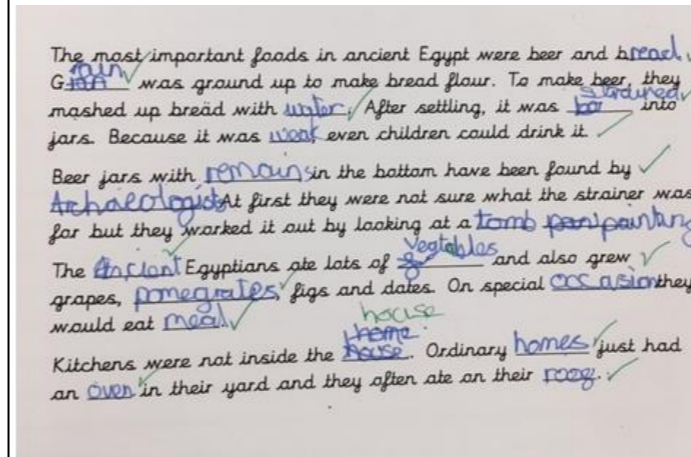 The most important foods in ancient Egypt were beer and bread.
Grain was ground up to make bread flour. To make beer, they
mashed up bread with water. After settling, it was into
jars. Because it was weak even children could drink it.
Beer jars with remains in the bottom have been found by
Archaeologist At first they were not sure what the strainer was
for but they worked it out by looking at a tomb painting
The Ancient Egyptians ate lots of vegtables and also grew
grapes, pomegrates, figs and dates. On special occasion they
would eat meal.
house
home
Kitchens were not inside the house. Ordinary homes just had
an oven in their yard and they often ate on their roof.